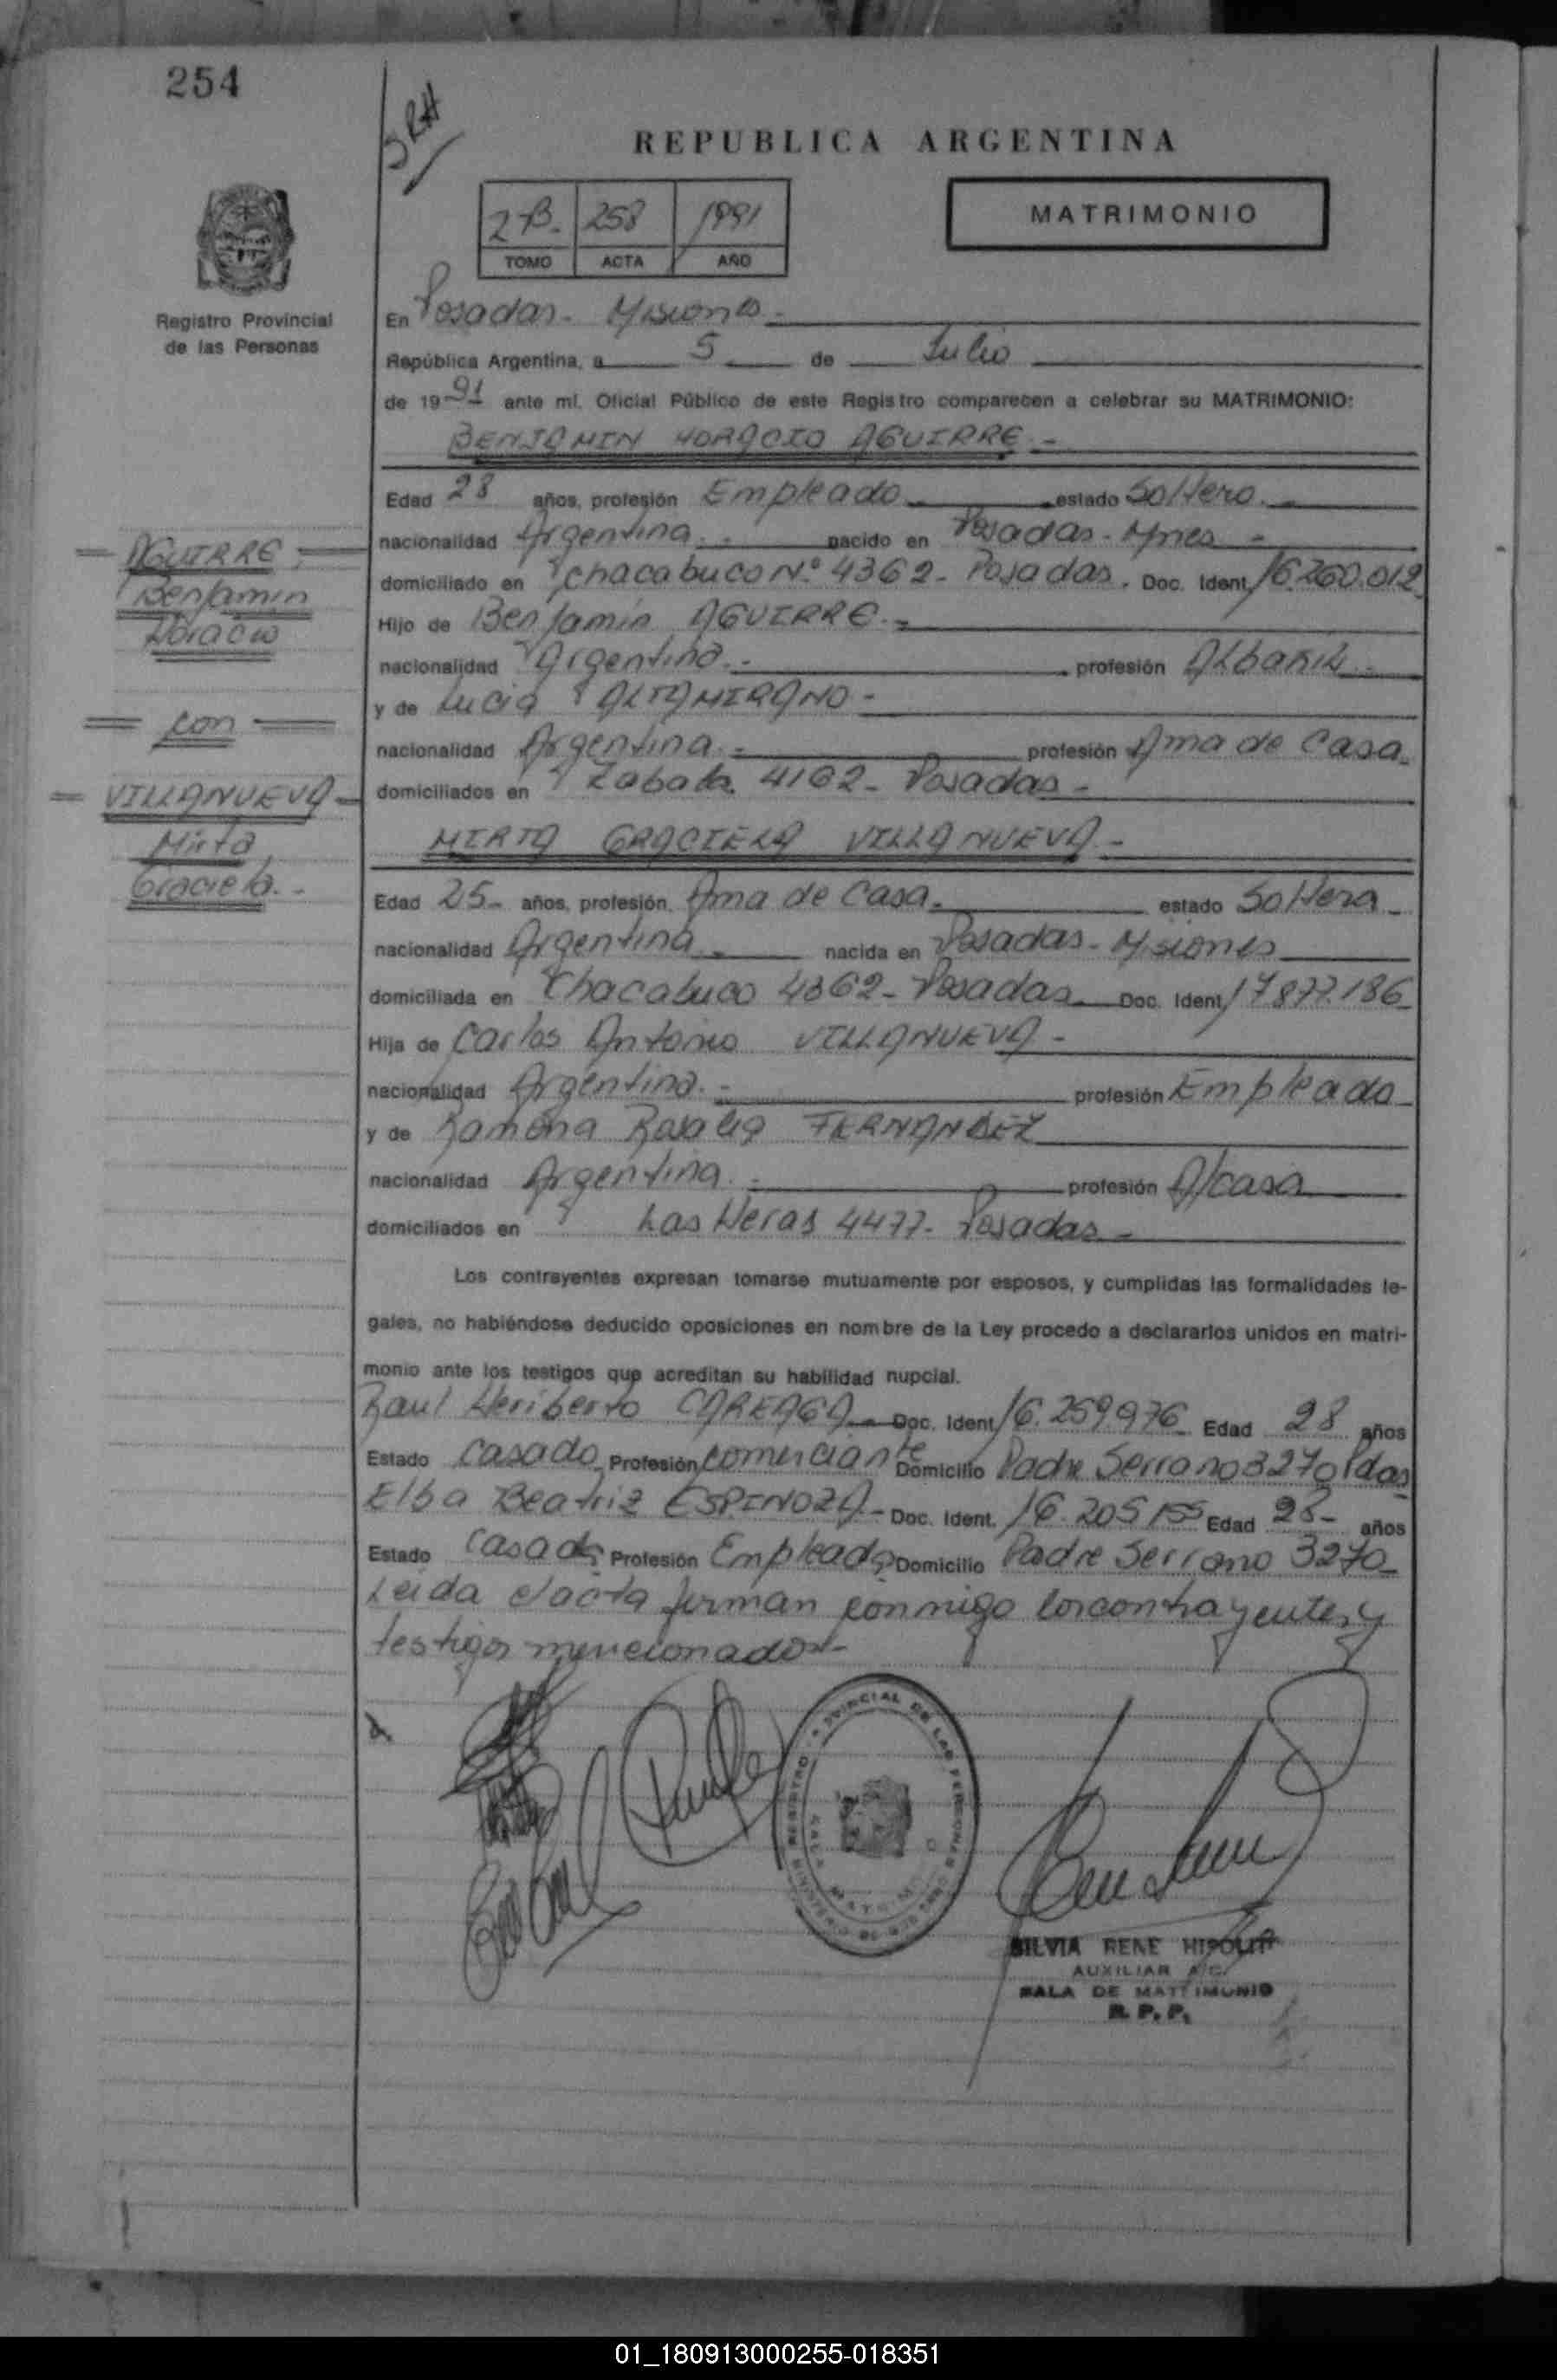 254
SRH
REPUBLICA ARGENTINA
2-B- 258 1991
TOMO ACTA AÑO
MATRIMONIO
Registro Provincial
de las Personas
En Posadas - Misiones -
República Argentina, a 5 de Julio
de 1991 ante mi, Oficial Público de este Registro comparecen a celebrar su MATRIMONIO:
BENJAMIN HORACIO AGUIRRE.-
Edad 28 años, profesión Empleado estado Soltero.-
nacionalidad Argentina.- nacido en Posadas - Mnes -
domiciliado en Chacabuco N.º 4362 - Posadas. Doc. Ident. 16.260.012
Hijo de Benjamin AGUIRRE.-
nacionalidad Argentina.- profesión Albañil -
y de Lucia ALTAMIRANO -
nacionalidad Argentina.- profesión Ama de Casa.
domiciliados en Zabala 4162 - Posadas -
AGUIRRE
Benjamin
Horacio
con
VILLANUEVA
Mirta
Graciela.-
MIRTA GRACIELA VILLANUEVA -
Edad 25- años, profesión, Ama de Casa.- estado Soltera -
nacionalidad Argentina nacida en Posadas - Misiones
domiciliada en Chacabuco 4362 - Posadas Doc. Ident. 17877.186
Hija de Carlos Antonio VILLANUEVA -
nacionalidad Argentina.- profesión Empleado
y de Ramona Rosalia FERNANDEZ
nacionalidad Argentina.- profesión A/casa
domiciliados en Las Heras 4477 - Posadas -
Los contrayentes expresan tomarse mutuamente por esposos, y cumplidas las formalidades le-
gales, no habiéndose deducido oposiciones en nombre de la Ley procedo a declararlos unidos en matri-
monio ante los testigos que acreditan su habilidad nupcial.
Raul Heriberto CAREAGA - Doc. Ident. 16.259.976 Edad 28 años
Estado Casado Profesión Comerciante Domicilio Padre Serrano 3270 Pdas
Elba Beatriz ESPINOZA - Doc. Ident. 16.205155 Edad 28- años
Estado Casada Profesión Empleada Domicilio Padre Serrano 3270 -
Leida el acta firman conmigo los contrayentes y
testigos mencionados -
SILVIA RENE HIPOLITT
AUXILIAR A/C.
SALA DE MATRIMONIO
R. P. P.
01_180913000255-018351